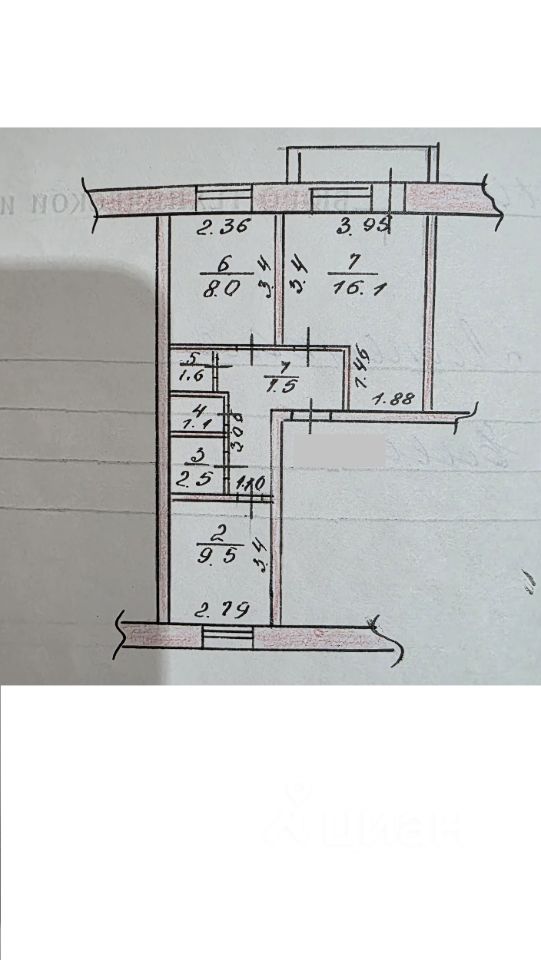 2.36
3.95
6
8.0
3.4
3.4
7
16.1
5
1.6
1
7.5
1.46
1.88
4
1.1
3.06
3
2.5
1.10
2
9.5
3.4
2.79
циан